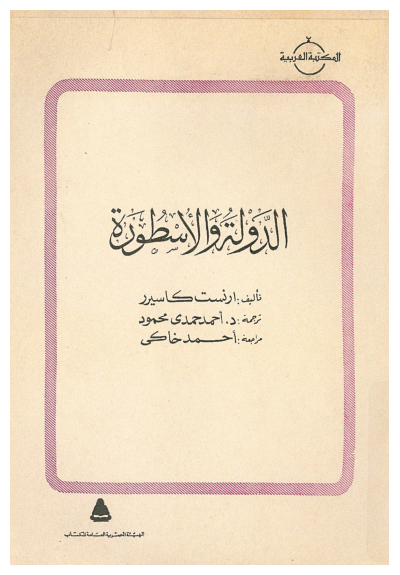 المكتبة العربية
الدَّولة والأسطورة
تأليف: ارنست كاسيرر
ترجمة: د. أحمد حمدى محمود
مراجعة: أحمد خاكى
الهيئة المصرية العامة للكتاب